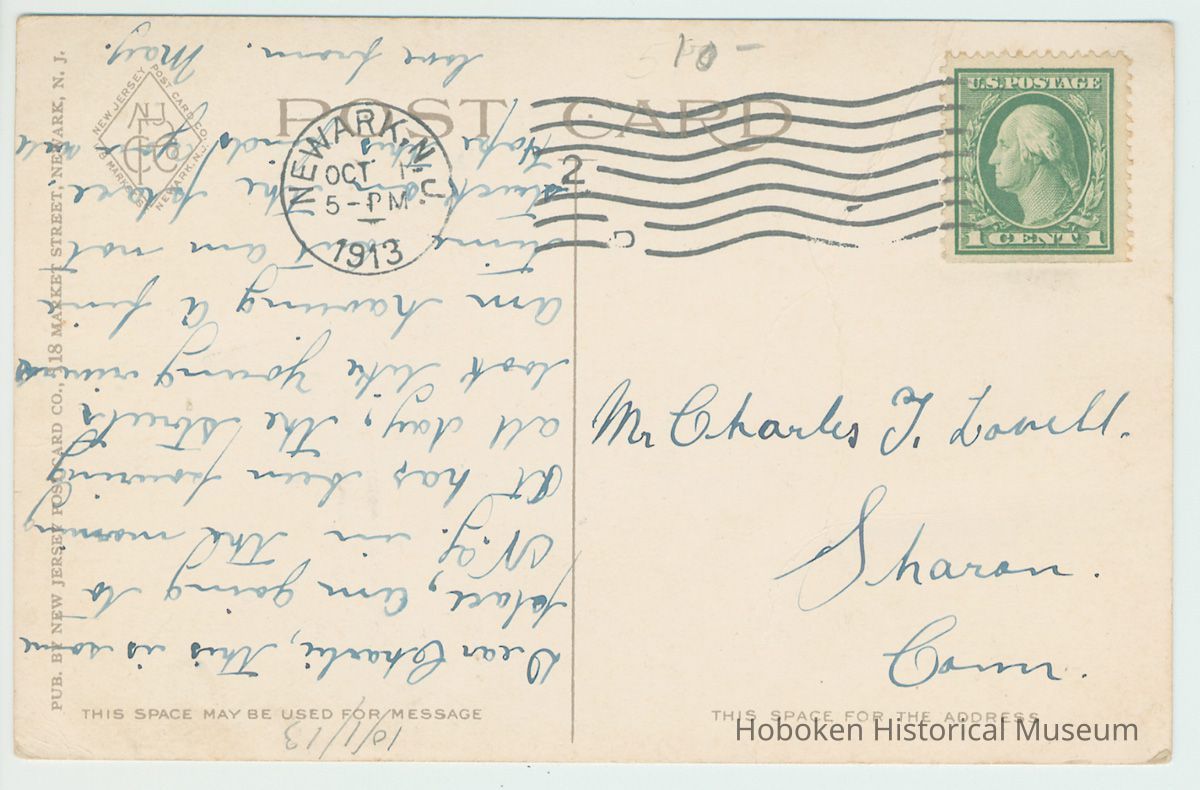 POST CARD
NEWARK, N.J.
OCT 1
5-PM
1913
2
U.S. POSTAGE
1 CENT 1
10 -
NEW JERSEY POST CARD CO.
NEWARK, N.J.
PUB. BY NEW JERSEY POST CARD CO., 118 MARKET STREET, NEWARK, N. J.
Dear Charlie, This is some
place, am going to
N.Y. in the morning
It has been pouring
all day, the streets
look like young rivers
am having a fine
time am not
stuck on the place.
Hope this finds you well
love from May.
Mr Charles F. Lovell.
Sharon.
Conn.
THIS SPACE MAY BE USED FOR MESSAGE
THIS SPACE FOR THE ADDRESS
10/1/13
Hoboken Historical Museum